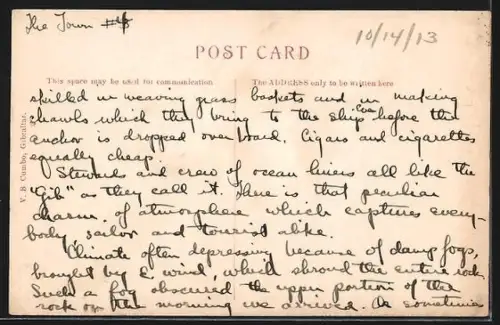 The Town #4
10/14/13
POST CARD
This space may be used for communication
The ADDRESS only to be written here
V. B. Cumbo, Gibraltar.
skilled in weaving grass baskets and in making
shawls which they bring to the ship before the
anchor is dropped overboard. Cigars and cigarettes
equally cheap.
Stewards and crew of ocean liners all like the
"Gib" as they call it. There is that peculiar
charm of atmosphere which captures every-
body sailor and tourist alike.
Climate often depressing because of damp fogs,
brought by E. wind, which shroud the entire rock.
Such a fog obscured the upper portion of the
rock on the morning we arrived. Or sometimes